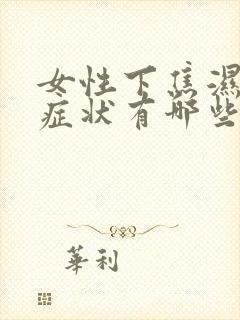 女性下焦濕
症状有哪些
華利